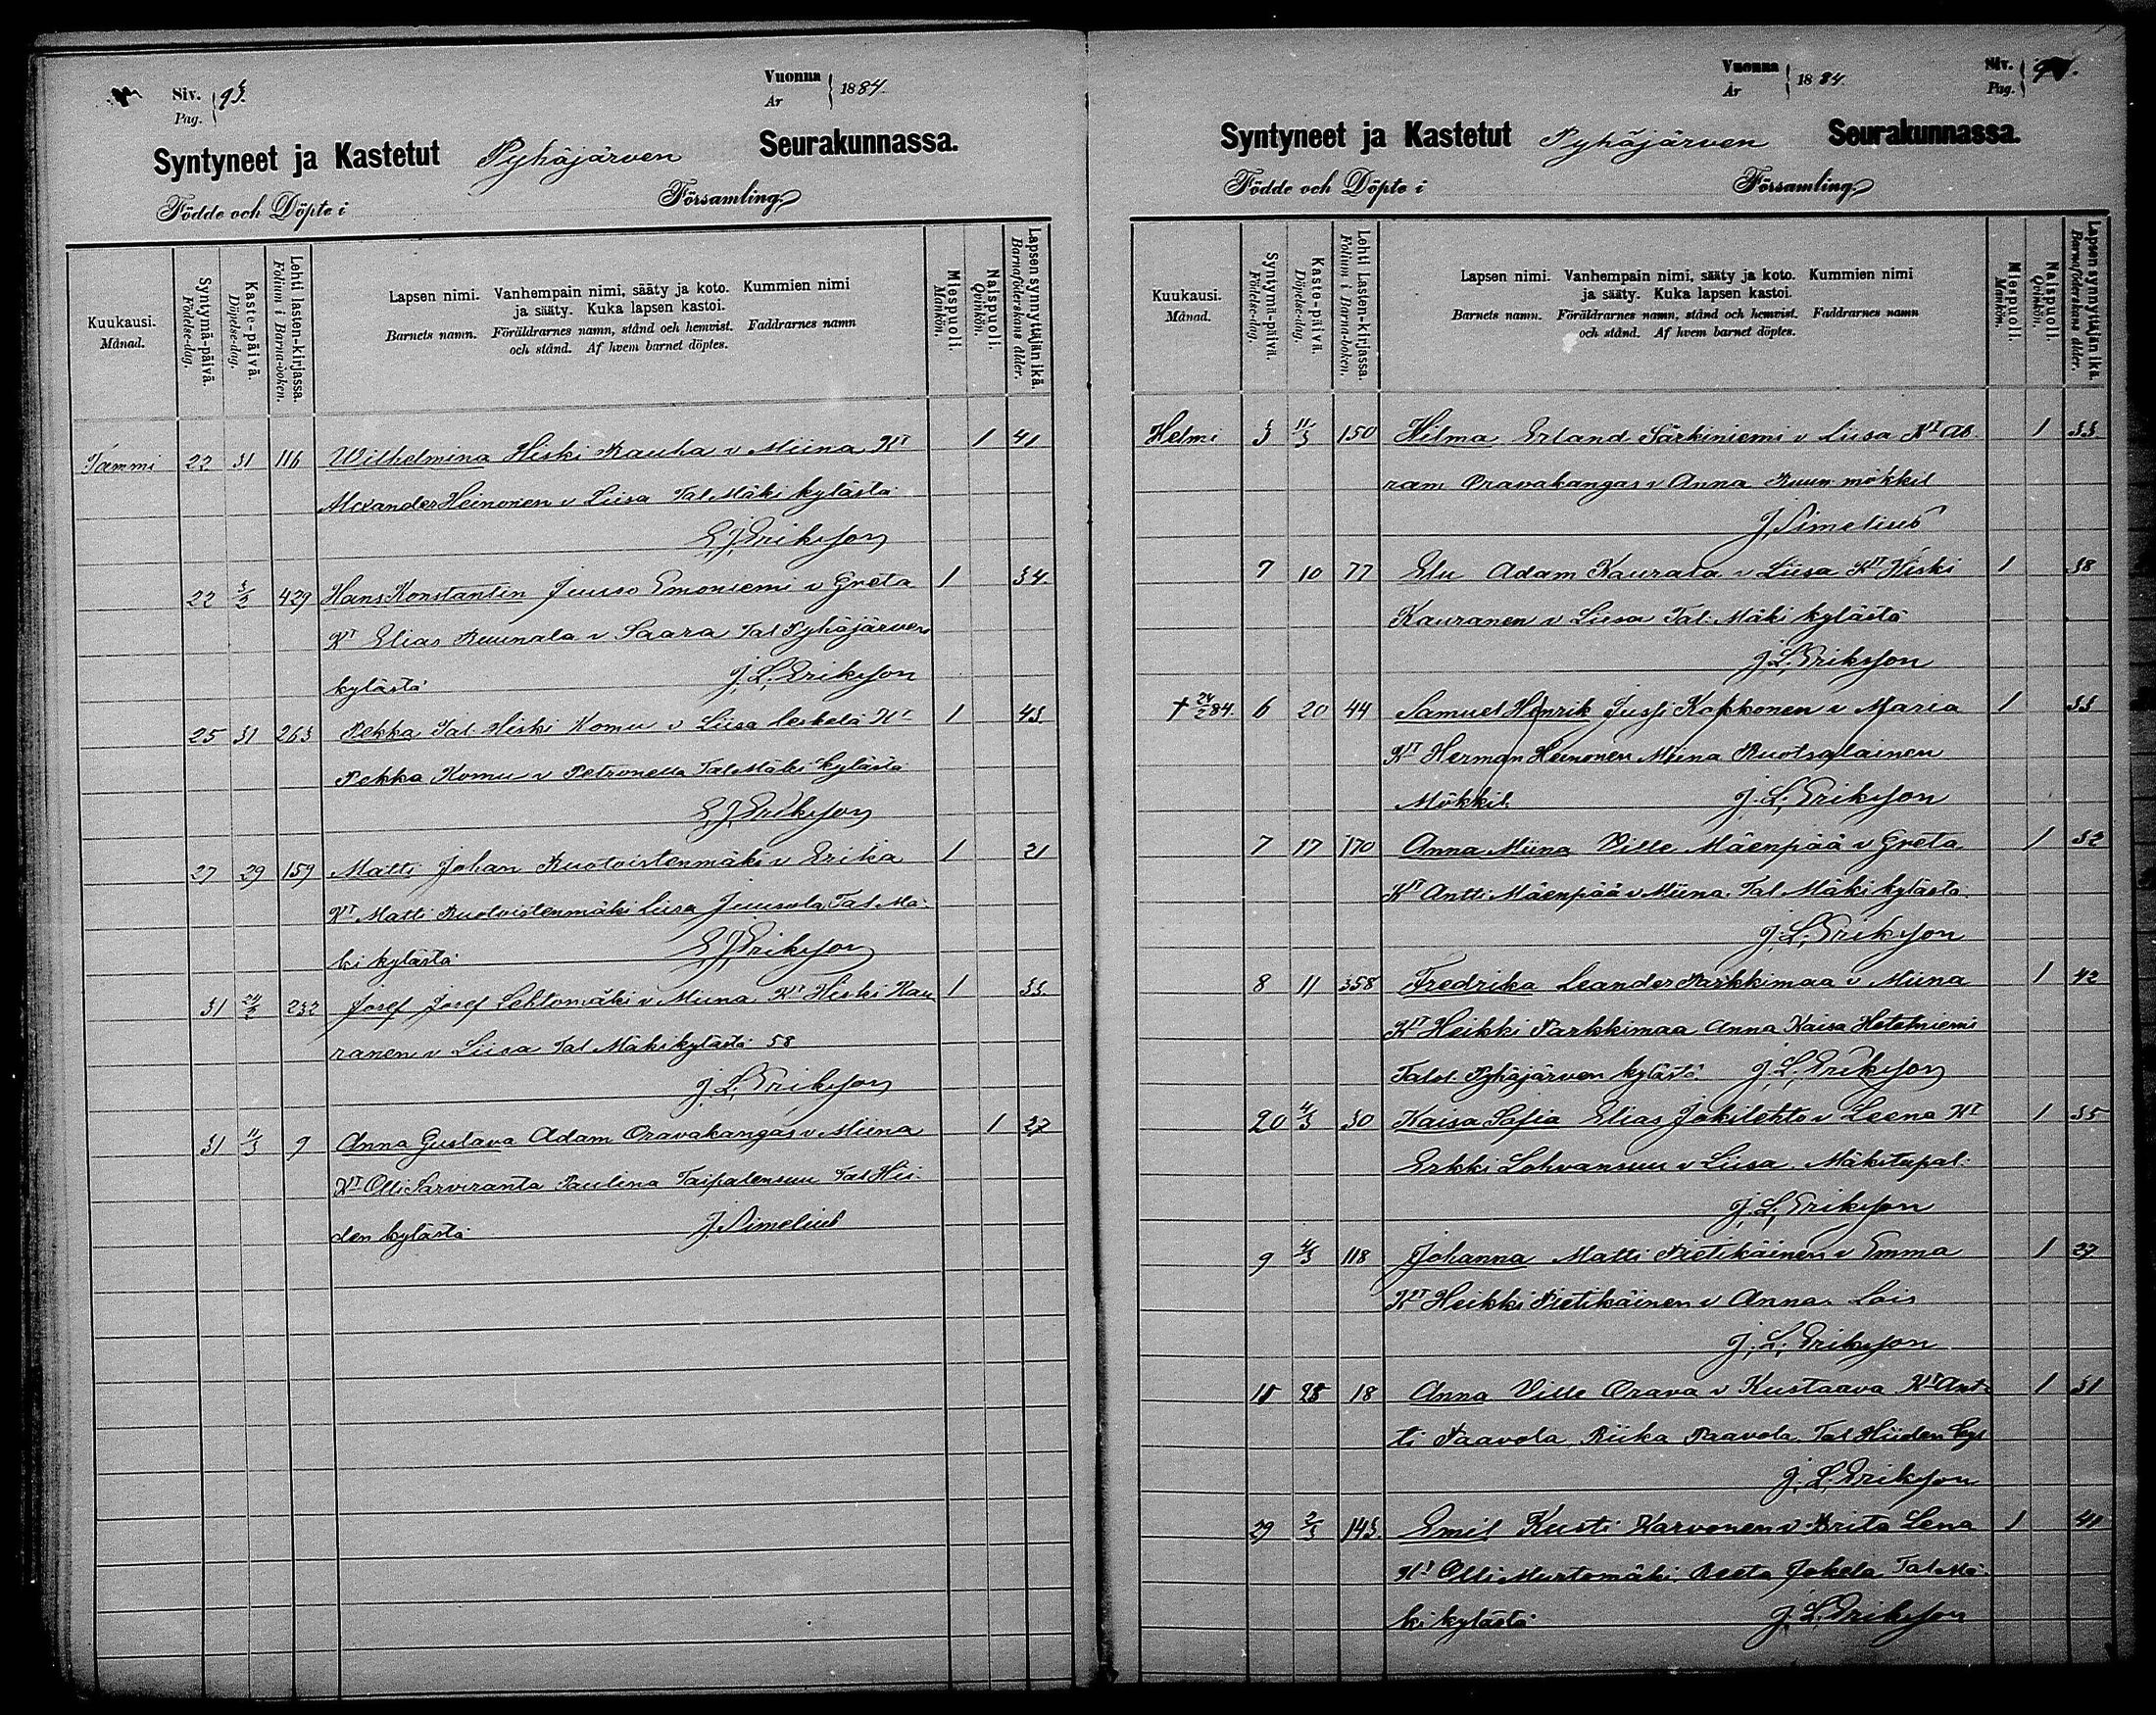 Siv. Pag. 93.
Vuonna År 1884.
Syntyneet ja Kastetut Pyhäjärven Seurakunnassa.
Födde och Döpte i Församling.
Kuukausi. Månad.
Syntymä-päivä. Födelse-dag.
Kaste-päivä. Döpelse-dag.
Lehti lasten-kirjassa. Folium i Barna-boken.
Lapsen nimi. Vanhempain nimi, sääty ja koto. Kummien nimi
ja sääty. Kuka lapsen kastoi.
Barnets namn. Föräldrarnes namn, stånd och hemvist. Faddrarnes namn
och stånd. Af hvem barnet döptes.
Miespuoli. Mankön.
Naispuoli. Qvinkön.
Lapsen synnyttäjän ikä. Barnaföderskans ålder.
Tammi 22 31 116 Wilhelmina Hiski Rauha v Miina Kt 1 41
Alexander Heinonen v Liisa Tal Mäki kylästä
E. J. Eriksson
22 3/2 429 Hans Konstantin Juuso Emoniemi v Greta 1 34
Kt Elias Ruunala v Saara Tal Pyhäjärven
kylästä J. L. Eriksson
25 31 263 Pekka Tal. Hiski Komu v Liisa leskelä Kt 1 43
Pekka Komu v Petronella Tal Mäki kylästä
E. J. Eriksson
27 29 159 Matti Johan Ruotoistenmäki v Erika 1 21
Kt Matti Ruotoistenmäki Liisa Juusola Tal Mä-
ki kylästä E. J. Eriksson
31 24/2 232 Josef Josef Lehtomäki v Miina Kt Hiski Kau 1 33.
ranen v Liisa Tal Mäkikylästä 58
J. L. Eriksson
31 11/3 9 Anna Gustava Adam Oravakangas v Miina 1 37
Kt Olli Sarviranta Paulina Taipalensuu Tal Hii-
den kylästä J. Simelius
Vuonna År 1884.
Siv. Pag.
Syntyneet ja Kastetut Pyhäjärven Seurakunnassa.
Födde och Döpte i Församling.
Kuukausi. Månad.
Syntymä-päivä. Födelse-dag.
Kaste-päivä. Döpelse-dag.
Lehti Lasten-kirjassa. Folium i Barna-boken.
Lapsen nimi. Vanhempain nimi, sääty ja koto. Kummien nimi
ja sääty. Kuka lapsen kastoi.
Barnets namn. Föräldrarnes namn, stånd och hemvist. Faddrarnes namn
och stånd. Af hvem barnet döptes.
Miespuoli. Mankön.
Naispuoli. Qvinkön.
Lapsen synnyttäjän ikä. Barnaföderskans ålder.
Helmi 3 11/3 150 Hilma Erland Särkiniemi v Liisa Kt Ab. 1 33
ram Oravakangas v Anna Ruun mökkil
J. Simelius
7 10 77 Elu Adam Kaurala v Liisa Kt Hiski 1 38
Kauranen v Liisa Tal. Mäki kylästä
J. L. Eriksson
† 24/2 84. 6 20 44 Samuel Henrik Jussi Kokkonen v Maria 1 33
Kt Herman Heinonen Miina Ruotsalainen
Mökkil. J. L. Eriksson
7 17 170 Anna Miina Ville Mäenpää v Greta 1 32
Kt Antti Mäenpää v Miina. Tal. Mäki kylästä
J. L. Eriksson
8 11 358 Fredrika Leander Parkkimaa v Miina 1 42
Kt Heikki Parkkimaa Anna Kaisa Hotelniemi
Talol. Pyhäjärven kylästä J. L. Eriksson
20 11/3 30 Kaisa Sofia Elias Jokilehto v Leena Kt 1 35
Erkki Lohvansuu v Liisa. Mäkitupal.
J. L. Eriksson
9 4/3 118 Johanna Matti Pietikäinen v Emma 1 27
Kt Heikki Pietikäinen v Anna. Lois
J. L. Eriksson
18 Anna Ville Orava v Kustaava Kt Ant- 1 31
ti Paavola, Riika Paavola. Tal Hiiden kyl
J. L. Eriksson
29 2/3 143 Emil Kusti Karvonen v Brita Lena 1 41
Kt Olli Murtomäki Reeta Jokela Tal Mä-
ki kylästä J. L. Eriksson